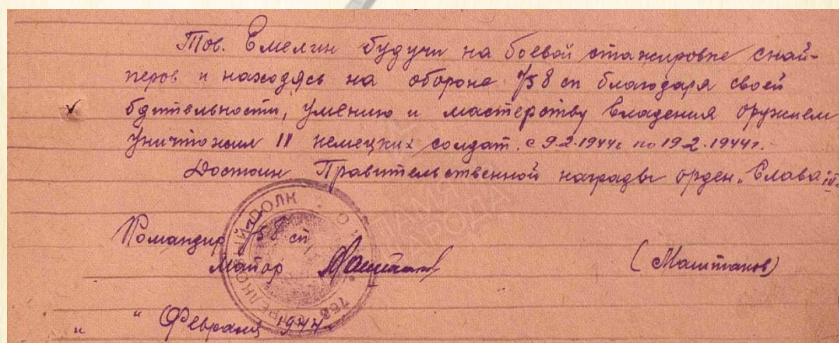 Тов. Емелин будучи на боевой стажировке снай-
перов и находясь на обороне 758 сп благодаря своей
бдительности, умению и мастерству владения оружием
уничтожил 11 немецких солдат. с 9.2.1944г. по 19.2.1944г.
Достоин Правительственной награды орден „Слава" III
Командир 758 сп
Майор (Маштаков)
" " Февраля 1944г.
ПАМЯТЬ
НАРОДА